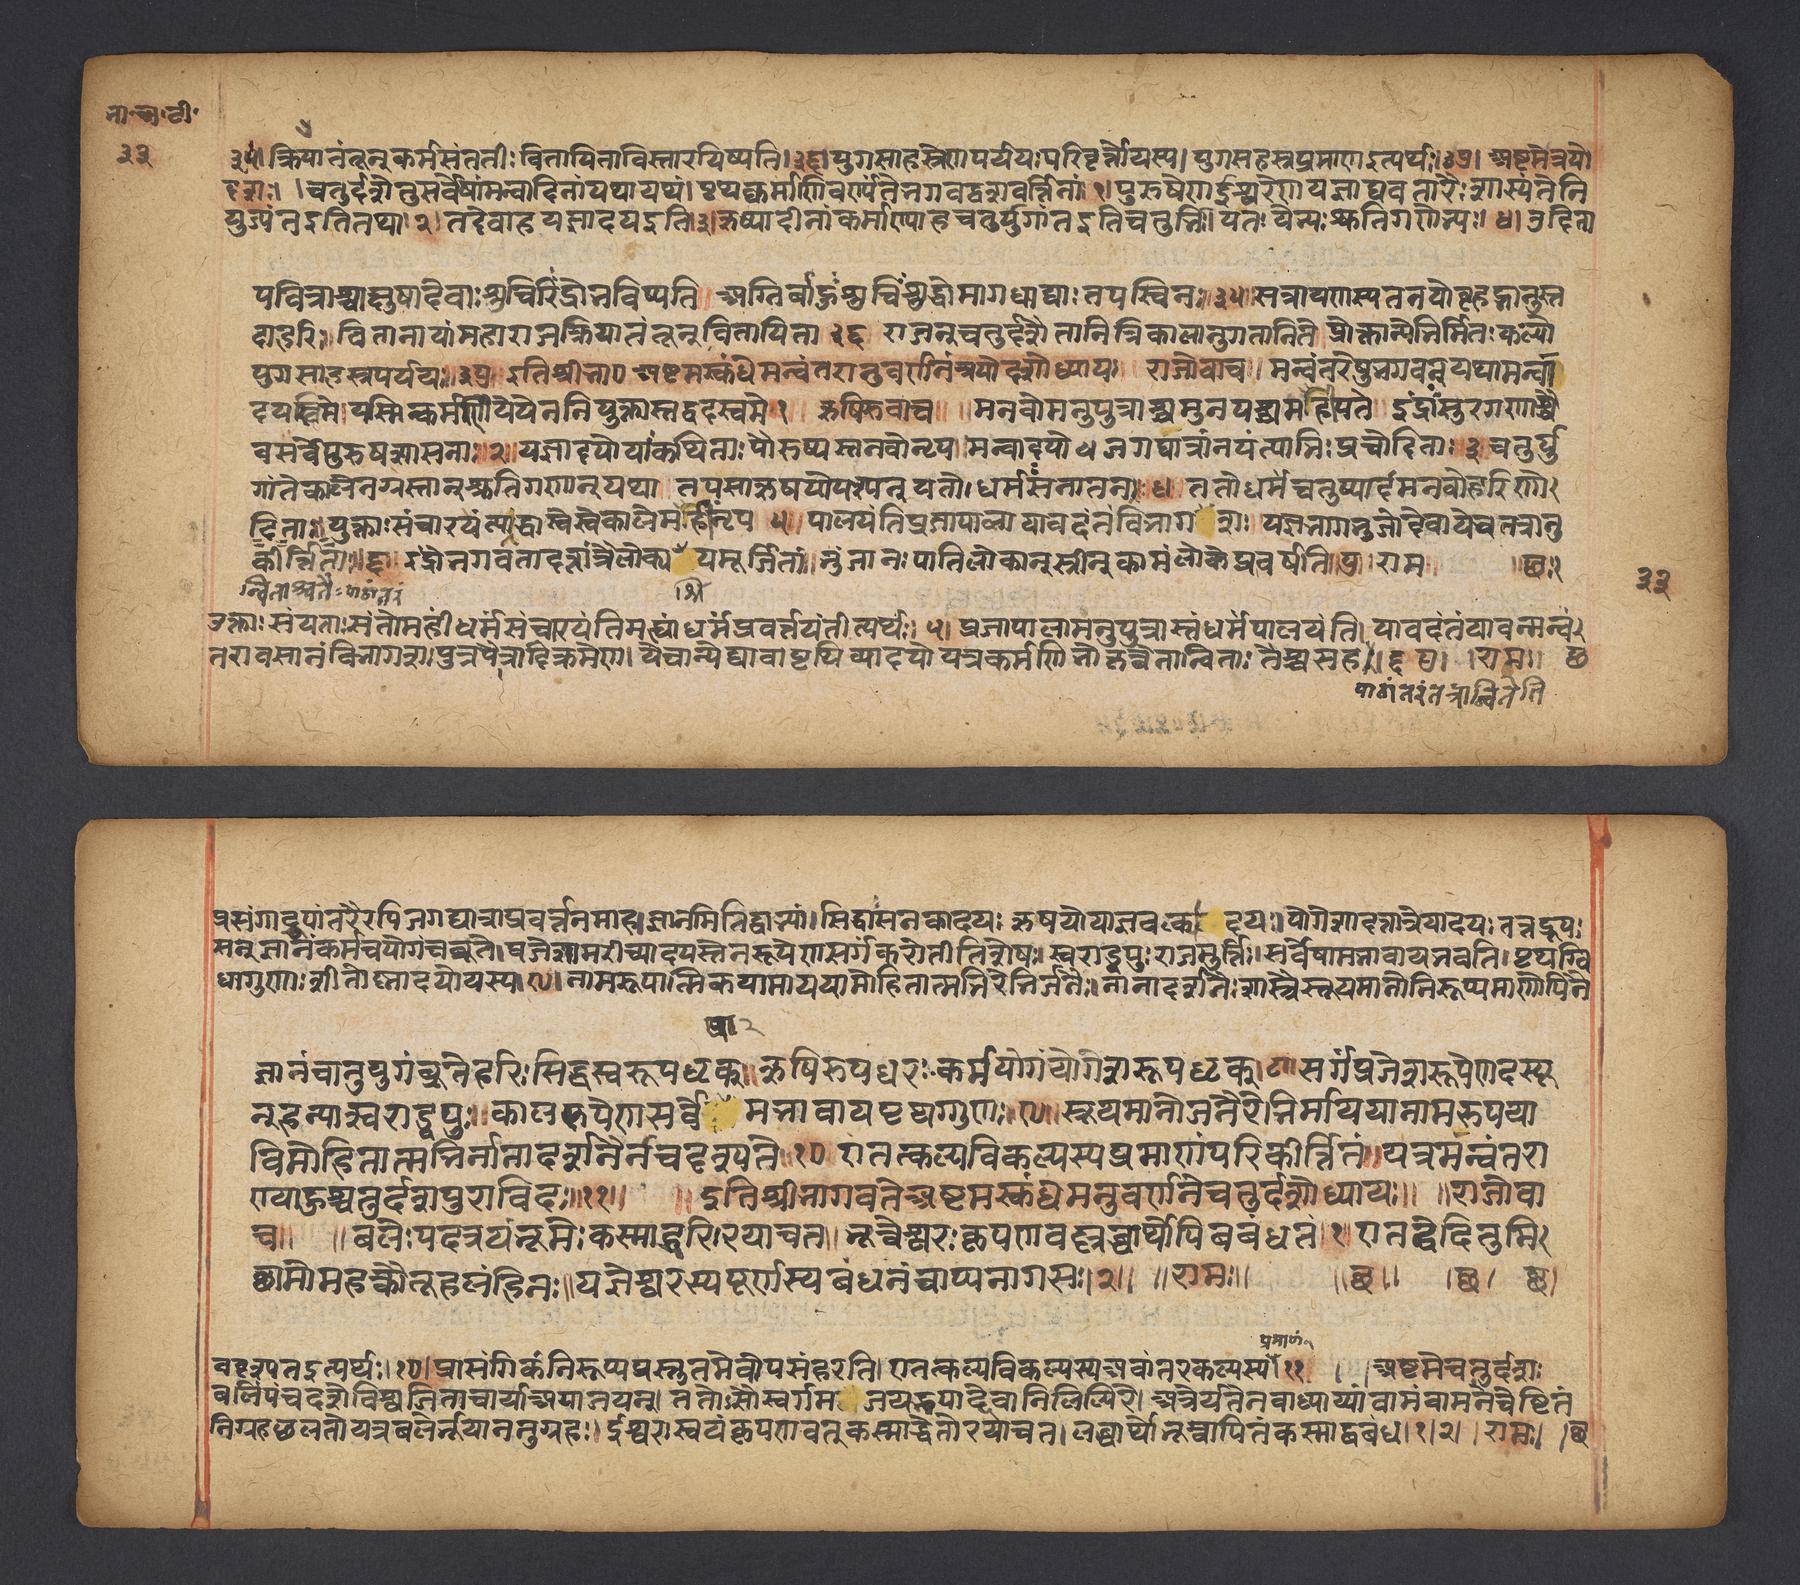 भा॰अ॰टी॰
३३
३५। क्रियातंतून् कर्मसंततीः वितायिता विस्तारयिष्यति। ३६। युगसाहस्रेण पर्ययः परिवृत्तो यस्य। युगसहस्रप्रमाण इत्यर्थः। ३७। अष्टमे त्रयो
दशः।। चतुर्दशे तु सर्वेषां मन्वादिनां यथायथं। पृथक्कर्माणि वर्ण्यंते भगवद्वशवर्त्तिनां। १। पुरुषेणेश्वरेण यज्ञाद्यवतारैः शास्यंते नि
युज्यंत इति तथा। २। तदेवाह यज्ञादय इति। ३। ऋष्यादीनां कर्माण्याह चतुर्युगांत इति चतुर्भिः। यतः येभ्यः श्रुतिगणेभ्यः। ४। उदिता
पवित्राश्चाक्षुषा देवाः शुचिरिंद्रो भविष्यति अग्निर्बाहुः शुचिः शुद्धो मागधाद्याः तपस्विनः। ३५। सत्रायणस्य तनयो बृहद्भानुस्त
दा हरिः। वितानायां महाराज क्रियातंतून् वितायिता ३६ राजन् चतुर्दशैतानि त्रिकालानुगतानि ते प्रोक्तान्येभिर्मितः कल्पो
युगसाहस्रपर्ययः। ३७ इति श्रीभा॰ अष्टमस्कंधे मन्वंतरानुवर्णनं त्रयोदशोध्यायः राजोवाच। मन्वंतरेषु भगवन् यथा मन्वा
दयस्त्विमे यस्मिन्कर्मणि ये येन नियुक्तास्तद्वदस्व मे १ ऋषिरुवाच मनवो मनुपुत्राश्च मुनयश्च महीपते इंद्राः सुरगणाश्चै
व सर्वे पुरुषशासनाः २। यज्ञादयो याः कथिताः पौरुष्यस्तनवो नृप। मन्वादयो जगद्यात्रां नयंत्याभिः प्रचोदिताः ३ चतुर्यु
गांते कालेन ग्रस्तान् श्रुतिगणान् यथा तपसा ऋषयोपश्यन् यतो धर्मः सनातनः। ४ ततो धर्मं चतुष्पादं मनवो हरिणो
दिताः युक्ताः संचारयंत्यद्धा स्वे स्वे काले महीं नृप ५। पालयंति प्रजापाला यावदंतं विभागशः यज्ञभागभुजो देवा ये च तत्रानु
कीर्त्तिताः। ६। इंद्रो भगवता दत्तां त्रैलोक्यश्रियमूर्जितां भुंजानः पाति लोकान् स्त्रीन् कामं लोके प्रवर्षति। ७। राम छ।
न्विताश्च तैः पाठांतरं
श्रि
३३
उक्ताः संयताः संतो महीं धर्मं संचारयंति मह्यां धर्मं प्रवर्त्तयंतीत्यर्थः। ५। प्रजापाला मनुपुत्रास्तं धर्मं पालयंति। यावदंतं यावन्मन्वं
तरावसानं विभागशः पुत्रपौत्रादिक्रमेण। ये चान्ये द्यावापृथिव्यादयो यत्र कर्मणि भोक्तृत्वेनान्विताः तैश्च सह। ६ ७। ।राम।। छ
पाठांतरं तत्रान्वितेति
प्रसंगाद्रूपांतरैरपि जगद्यात्राप्रवर्त्तनमाह। ज्ञानमिति द्वाभ्यां। सिद्धाः सनकादयः ऋषयो याज्ञवल्क्यादयः। योगेशा दत्तात्रेयादयः तत्तद्रूपः
सन् ज्ञानं कर्म च योगं च ब्रूते। प्रजेशा मरीच्यादयस्तेन रूपेण सर्गं करोतीति शेषः। स्वराड्वपुः राजमूर्त्तिः। सर्वेषामभावाय भवति। पृथग्वि
धा गुणाः शीतोष्णादयो यस्य। ९। नामरूपात्मिकया मायया मोहितात्मभिरेभिर्जनैः। नानादर्शनैः शास्त्रैः स्तूयमानो निरूप्यमाणोपि नै
ज्ञानं चानुयुगं ब्रूते हरिः सिद्धस्वरूपधृक्। ऋषिरूपधरः कर्म योगं योगेशरूपधृक्। ८। सर्गं प्रजेशरूपेण दस्यू
न् हन्यात्स्वराड्वपुः। कालरूपेण सर्वेषामभावाय पृथग्गुणः। ९। स्तूयमानो जनैरेभिर्मायया नामरूपया
विमोहितात्मभिर्नानादर्शनैर्न च दृश्यते १० एतत्कल्पविकल्पस्य प्रमाणं परिकीर्त्तितं। यत्र मन्वंतरा
ण्याहुश्चतुर्दश पुराविदः।। ११।। ।। इति श्रीभागवते अष्टमस्कंधे मनुवर्णने चतुर्दशोध्यायः।। ।। राजोवा
च।। ।। बलेः पदत्रयं भूमेः कस्माद्धरिरयाचत। भूत्वेश्वरः कृपणवल्लब्धार्थोपि बबंध तं। १। एतद्वेदितुमि
च्छामो महत्कौतूहलं हि नः।। यज्ञेश्वरस्य पूर्णस्य बंधनं चाप्यनागसः। २।। ।। रामः।। ।। छ।। । छ। छ।
प्रमाणं
व दृश्यत इत्यर्थः। १०। प्रासंगिकं निरूप्य प्रस्तुतमेवोपसंहरति। एतत्कल्पविकल्पस्य अवांतरकल्पस्य ११ ।। अष्टमे चतुर्दशः
बलिं पंचदशे विश्वजिताचार्या अयाजयन्। ततोसौ स्वर्गमजयत् भयाद्देवा निलिल्यिरे। अत्रैर्यते नवाध्याय्यां वामं वामनचेष्टितं
निग्रहच्छलतो यत्र बलेर्भूयाननुग्रहः। ईश्वरः स्वयं कृपणवत् कस्माद्धेतोरयाचत। लब्धार्थो भूत्वापि तं कस्माद्बबंध। १। २। । रामः। । छ